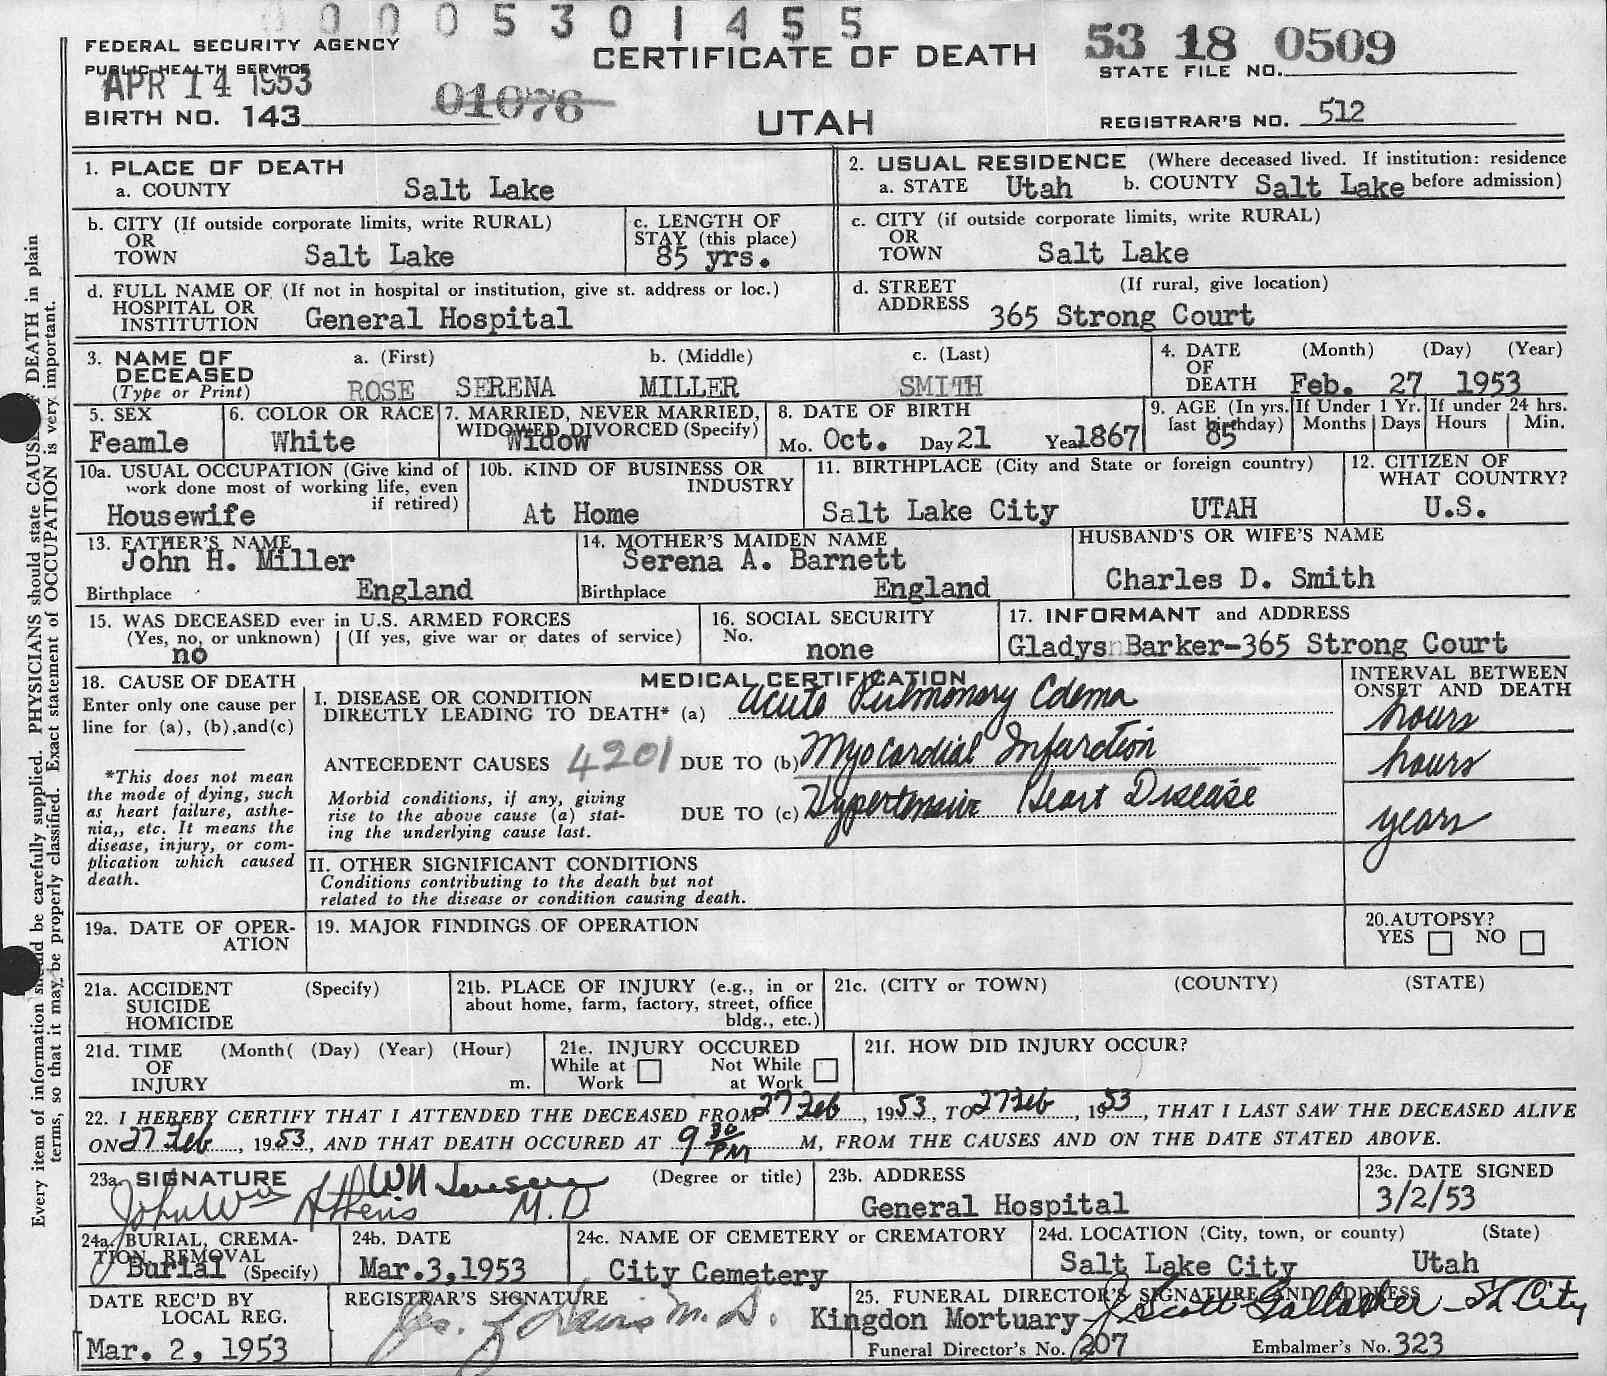 0 0 0 0 5 3 0 1 4 5 5
FEDERAL SECURITY AGENCY
PUBLIC HEALTH SERVICE
APR 14 1953
BIRTH NO. 143
01076
CERTIFICATE OF DEATH
UTAH
53 18 0509
STATE FILE NO.
REGISTRAR'S NO. 512
1. PLACE OF DEATH
a. COUNTY Salt Lake
2. USUAL RESIDENCE (Where deceased lived. If institution: residence
a. STATE Utah b. COUNTY Salt Lake before admission)
b. CITY (If outside corporate limits, write RURAL)
OR
TOWN Salt Lake
c. LENGTH OF
STAY (this place)
85 yrs.
c. CITY (if outside corporate limits, write RURAL)
OR
TOWN Salt Lake
d. FULL NAME OF (If not in hospital or institution, give st. address or loc.)
HOSPITAL OR
INSTITUTION General Hospital
d. STREET (If rural, give location)
ADDRESS
365 Strong Court
3. NAME OF a. (First) b. (Middle) c. (Last)
DECEASED
(Type or Print) ROSE SERENA MILLER SMITH
4. DATE (Month) (Day) (Year)
OF
DEATH Feb. 27 1953
5. SEX
Feamle
6. COLOR OR RACE
White
7. MARRIED, NEVER MARRIED,
WIDOWED, DIVORCED (Specify)
Widow
8. DATE OF BIRTH
Mo. Oct. Day 21 Year 1867
9. AGE (In yrs.
last birthday)
85
If Under 1 Yr.
Months Days
If under 24 hrs.
Hours Min.
10a. USUAL OCCUPATION (Give kind of
work done most of working life, even
if retired)
Housewife
10b. KIND OF BUSINESS OR
INDUSTRY
At Home
11. BIRTHPLACE (City and State or foreign country)
Salt Lake City UTAH
12. CITIZEN OF
WHAT COUNTRY?
U.S.
13. FATHER'S NAME
John H. Miller
Birthplace England
14. MOTHER'S MAIDEN NAME
Serena A. Barnett
Birthplace England
HUSBAND'S OR WIFE'S NAME
Charles D. Smith
15. WAS DECEASED ever in U.S. ARMED FORCES
(Yes, no, or unknown) (If yes, give war or dates of service)
no
16. SOCIAL SECURITY
No.
none
17. INFORMANT and ADDRESS
Gladys Barker-365 Strong Court
18. CAUSE OF DEATH
Enter only one cause per
line for (a), (b),and(c)
*This does not mean
the mode of dying, such
as heart failure, asthe-
nia,, etc. It means the
disease, injury, or com-
plication which caused
death.
MEDICAL CERTIFICATION
I. DISEASE OR CONDITION
DIRECTLY LEADING TO DEATH* (a) Acute Pulmonary Edema
ANTECEDENT CAUSES 4201 DUE TO (b) Myocardial Infarction
Morbid conditions, if any, giving
rise to the above cause (a) stat-
ing the underlying cause last.
DUE TO (c) Hypertensive Heart Disease
INTERVAL BETWEEN
ONSET AND DEATH
hours
hours
years
II. OTHER SIGNIFICANT CONDITIONS
Conditions contributing to the death but not
related to the disease or condition causing death.
19a. DATE OF OPER-
ATION
19. MAJOR FINDINGS OF OPERATION
20.AUTOPSY?
YES NO
21a. ACCIDENT (Specify)
SUICIDE
HOMICIDE
21b. PLACE OF INJURY (e.g., in or
about home, farm, factory, street, office
bldg., etc.)
21c. (CITY or TOWN) (COUNTY) (STATE)
21d. TIME (Month( (Day) (Year) (Hour)
OF
INJURY m.
21e. INJURY OCCURED
While at Not While
Work at Work
21f. HOW DID INJURY OCCUR?
22. I HEREBY CERTIFY THAT I ATTENDED THE DECEASED FROM 27 Feb, 1953, TO 27 Feb, 1953, THAT I LAST SAW THE DECEASED ALIVE
ON 27 Feb, 1953, AND THAT DEATH OCCURED AT 9 30 PM M, FROM THE CAUSES AND ON THE DATE STATED ABOVE.
23a. SIGNATURE (Degree or title)
John Wm M.D.
23b. ADDRESS
General Hospital
23c. DATE SIGNED
3/2/53
24a. BURIAL, CREMA-
TION, REMOVAL
Burial (Specify)
24b. DATE
Mar.3,1953
24c. NAME OF CEMETERY or CREMATORY
City Cemetery
24d. LOCATION (City, town, or county) (State)
Salt Lake City Utah
DATE REC'D BY
LOCAL REG.
Mar. 2, 1953
REGISTRAR'S SIGNATURE
M.D.
25. FUNERAL DIRECTOR'S SIGNATURE AND ADDRESS
Kingdon Mortuary J. Scott Gallacher - SL City
Funeral Director's No. 207 Embalmer's No. 323
Every item of information should be carefully supplied. PHYSICIANS should state CAUSE OF DEATH in plain
terms, so that it may be properly classified. Exact statement of OCCUPATION is very important.